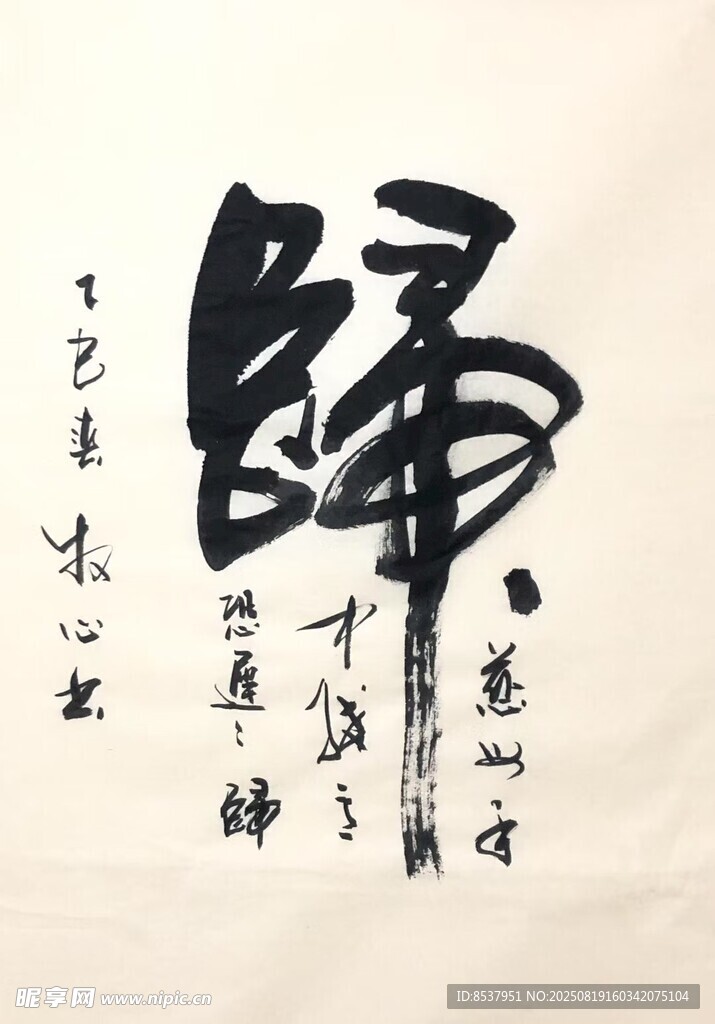 歸
慈母手
中綫意
恐遲〻歸
乙巳春 牧心书
昵享网 www.nipic.cn
ID:8537951 NO:20250819160342075104